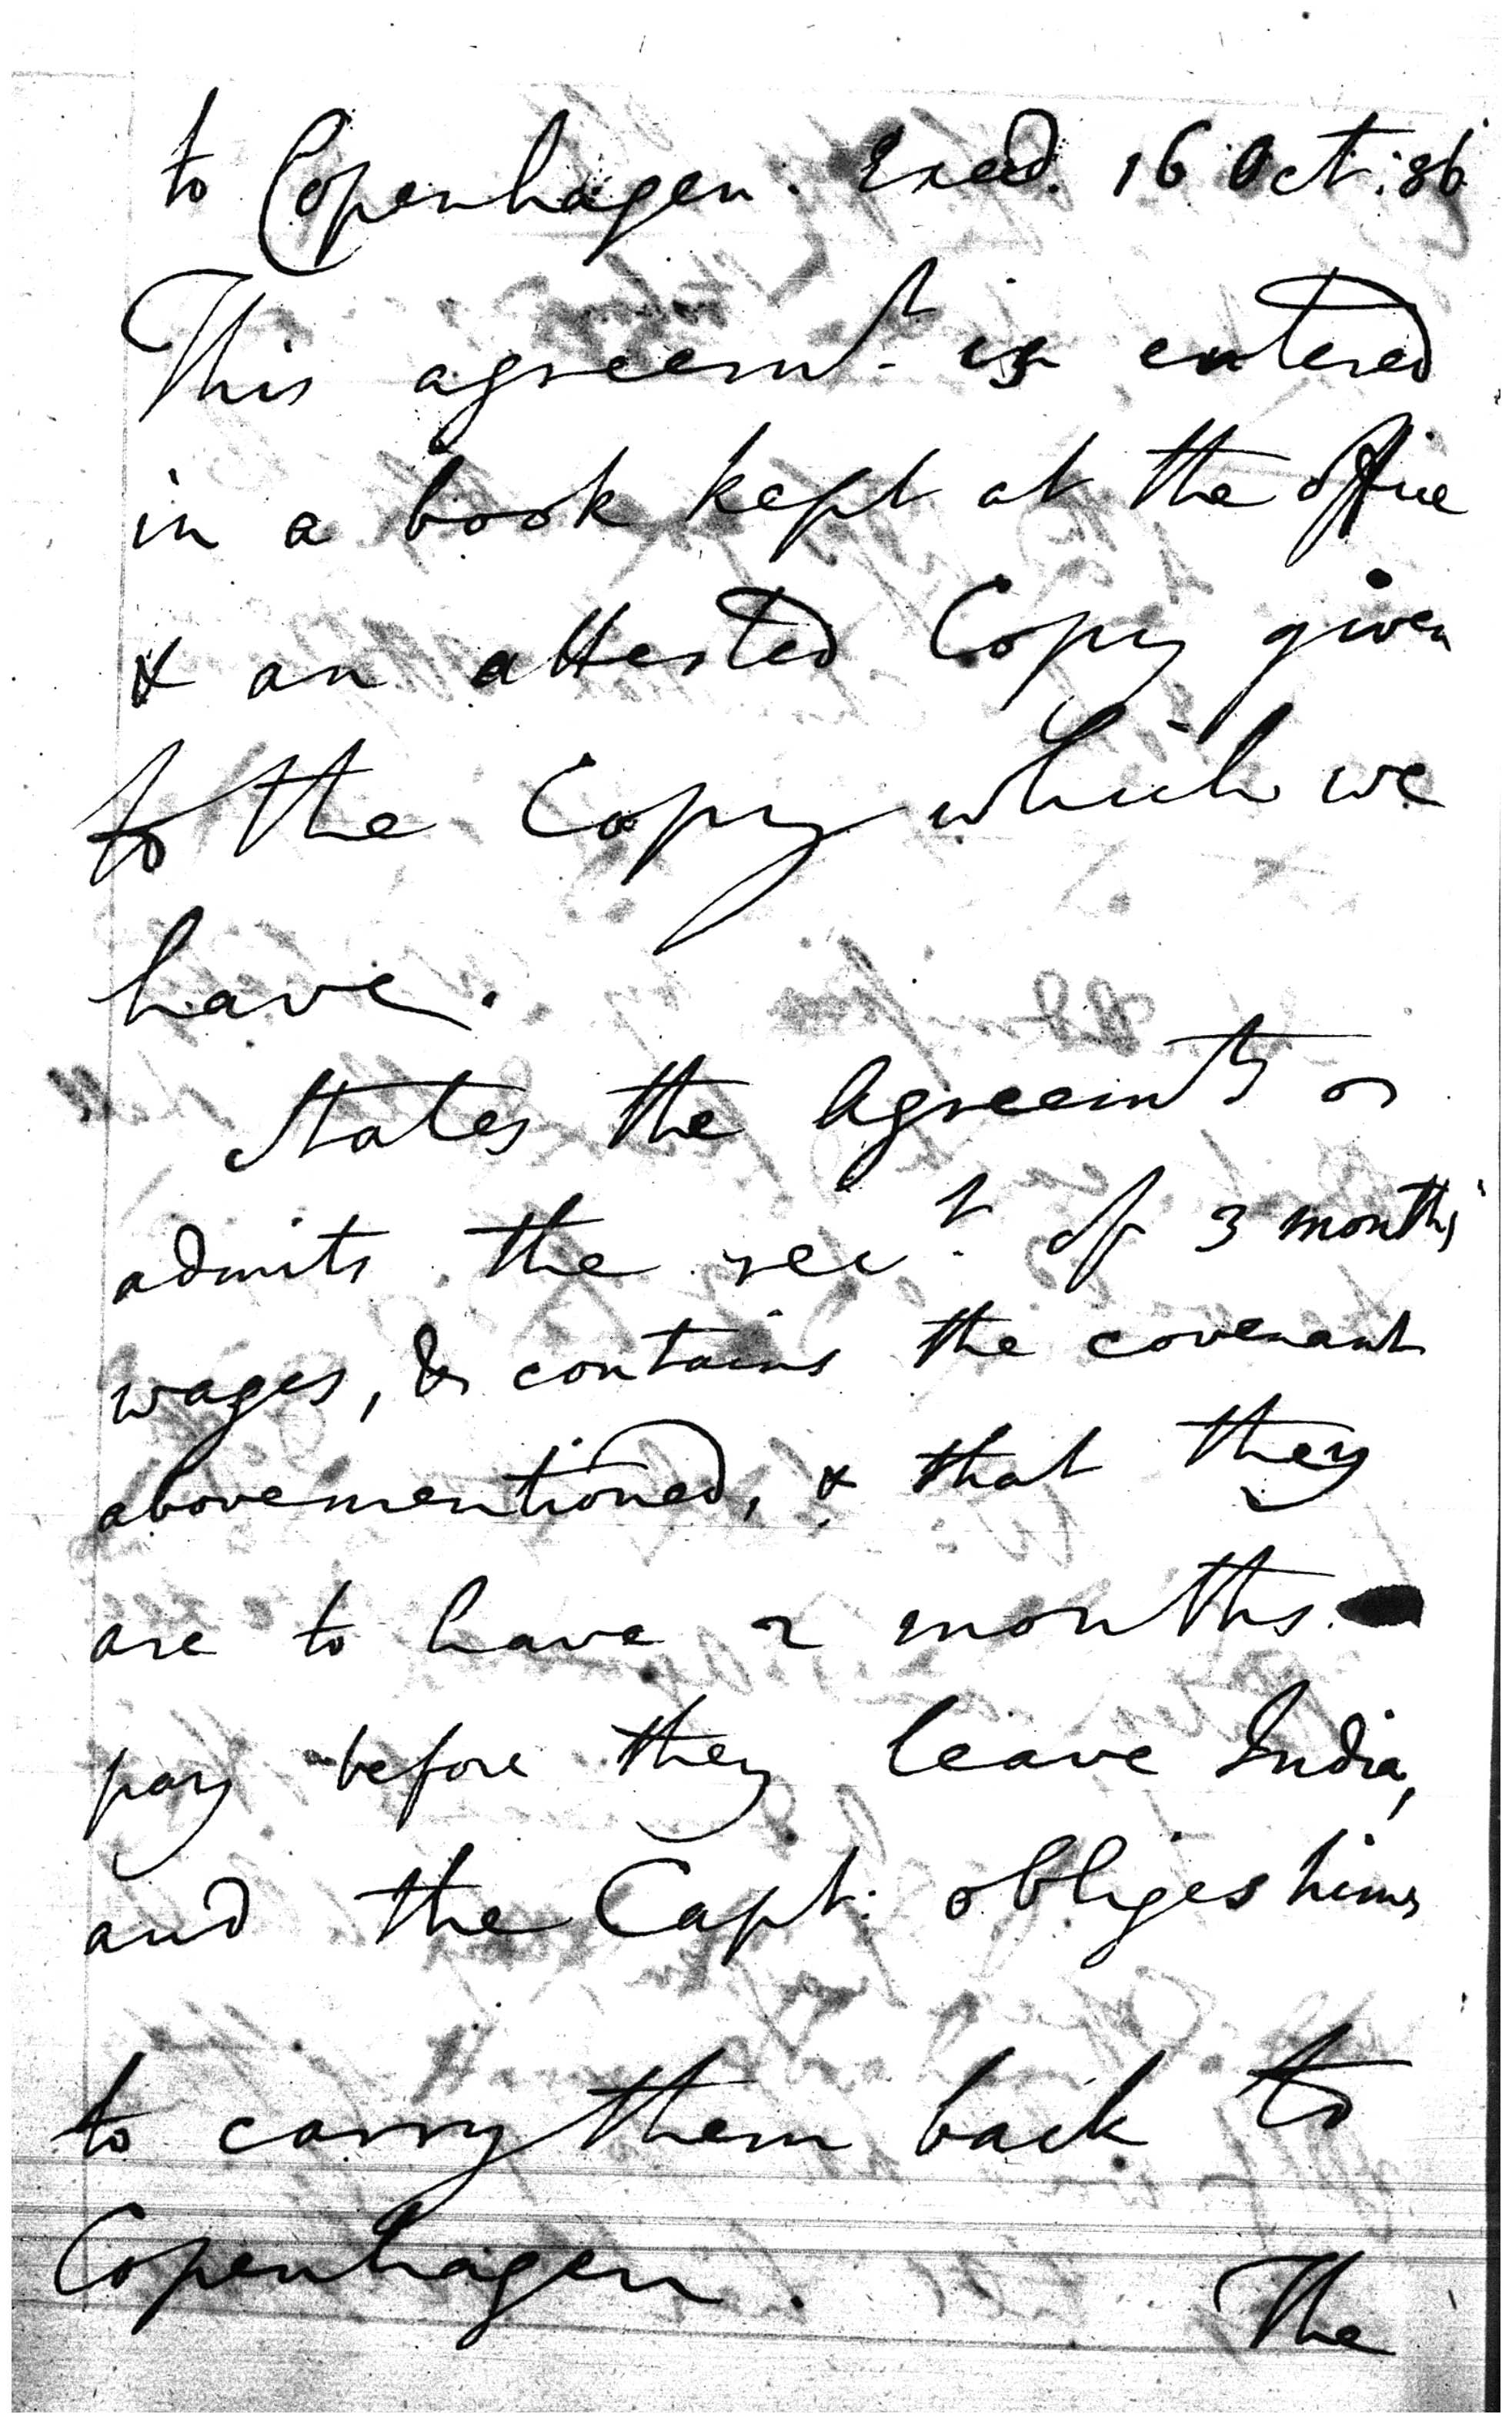 to Copenhagen. Exed. 16 Oct: 86
This agreemt. is entered
in a book kept at the office
& an attested Copy given
to the Copy which we
have.
States the Agreemts or
admits the rect. of 3 months
wages, & contains the covenant
abovementioned, & that they
are to have 2 months
pay before they leave India,
and the Capt: obliges hims
to carry them back to
Copenhagen.
The